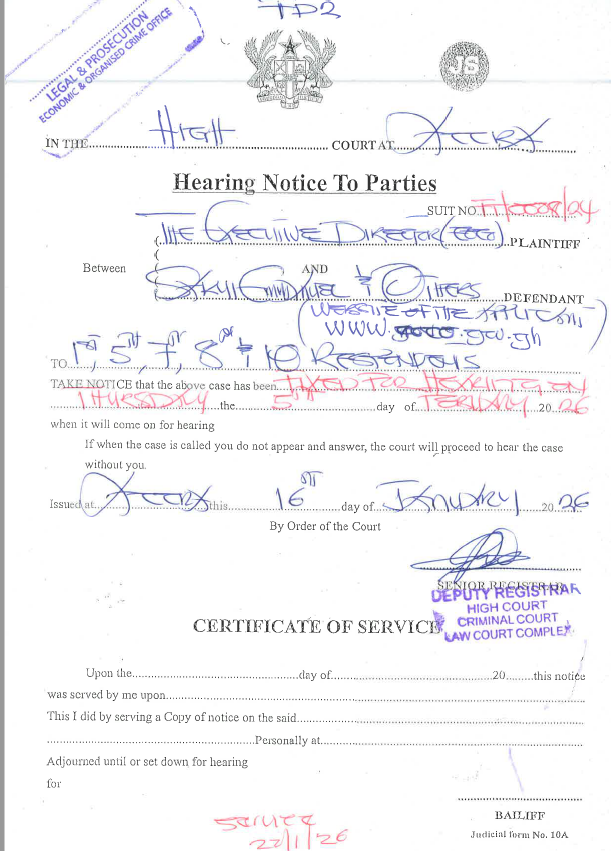 TD2
LEGAL & PROSECUTION
ECONOMIC & ORGANISED CRIME OFFICE
JS
IN THE HIGH COURT AT ACCRA
Hearing Notice To Parties
SUIT NO. /24
THE EXECUTIVE DIRECTOR (EOCO) PLAINTIFF
Between AND
EMMANUEL & OTHERS DEFENDANT
(WEBSITE OF THE APPLICANT
www. .gov.gh
TO 1st, 5TH, 7, 8 & 10 RESPONDENTS
TAKE NOTICE that the above case has been FIXED FOR HEARING ON
THURSDAY the 5TH day of 2026
when it will come on for hearing
If when the case is called you do not appear and answer, the court will proceed to hear the case
without you.
Issued at ACCRA this 16 day of JANUARY 2026
By Order of the Court
SENIOR REGISTRAR
DEPUTY REGISTRAR
HIGH COURT
CRIMINAL COURT
LAW COURT COMPLEX
CERTIFICATE OF SERVICE
Upon the day of 20 this notice
was served by me upon
This I did by serving a Copy of notice on the said
Personally at
Adjourned until or set down for hearing
for
BAILIFF
Judicial form No. 10A
SERVICE
22/1/26